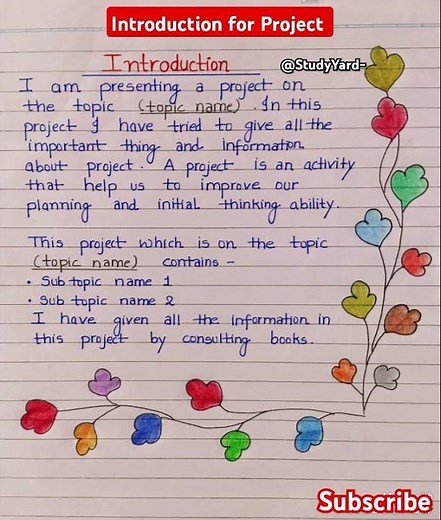 Introduction for Project
Introduction
@StudyYard-
I am presenting a project on
the topic (topic name). In this
project I have tried to give all the
important thing and information
about project. A project is an activity
that help us to improve our
planning and initial thinking ability.
This project which is on the topic
(topic name) contains -
• Sub topic name 1
• Sub topic name 2
I have given all the information in
this project by consulting books.
Subscribe